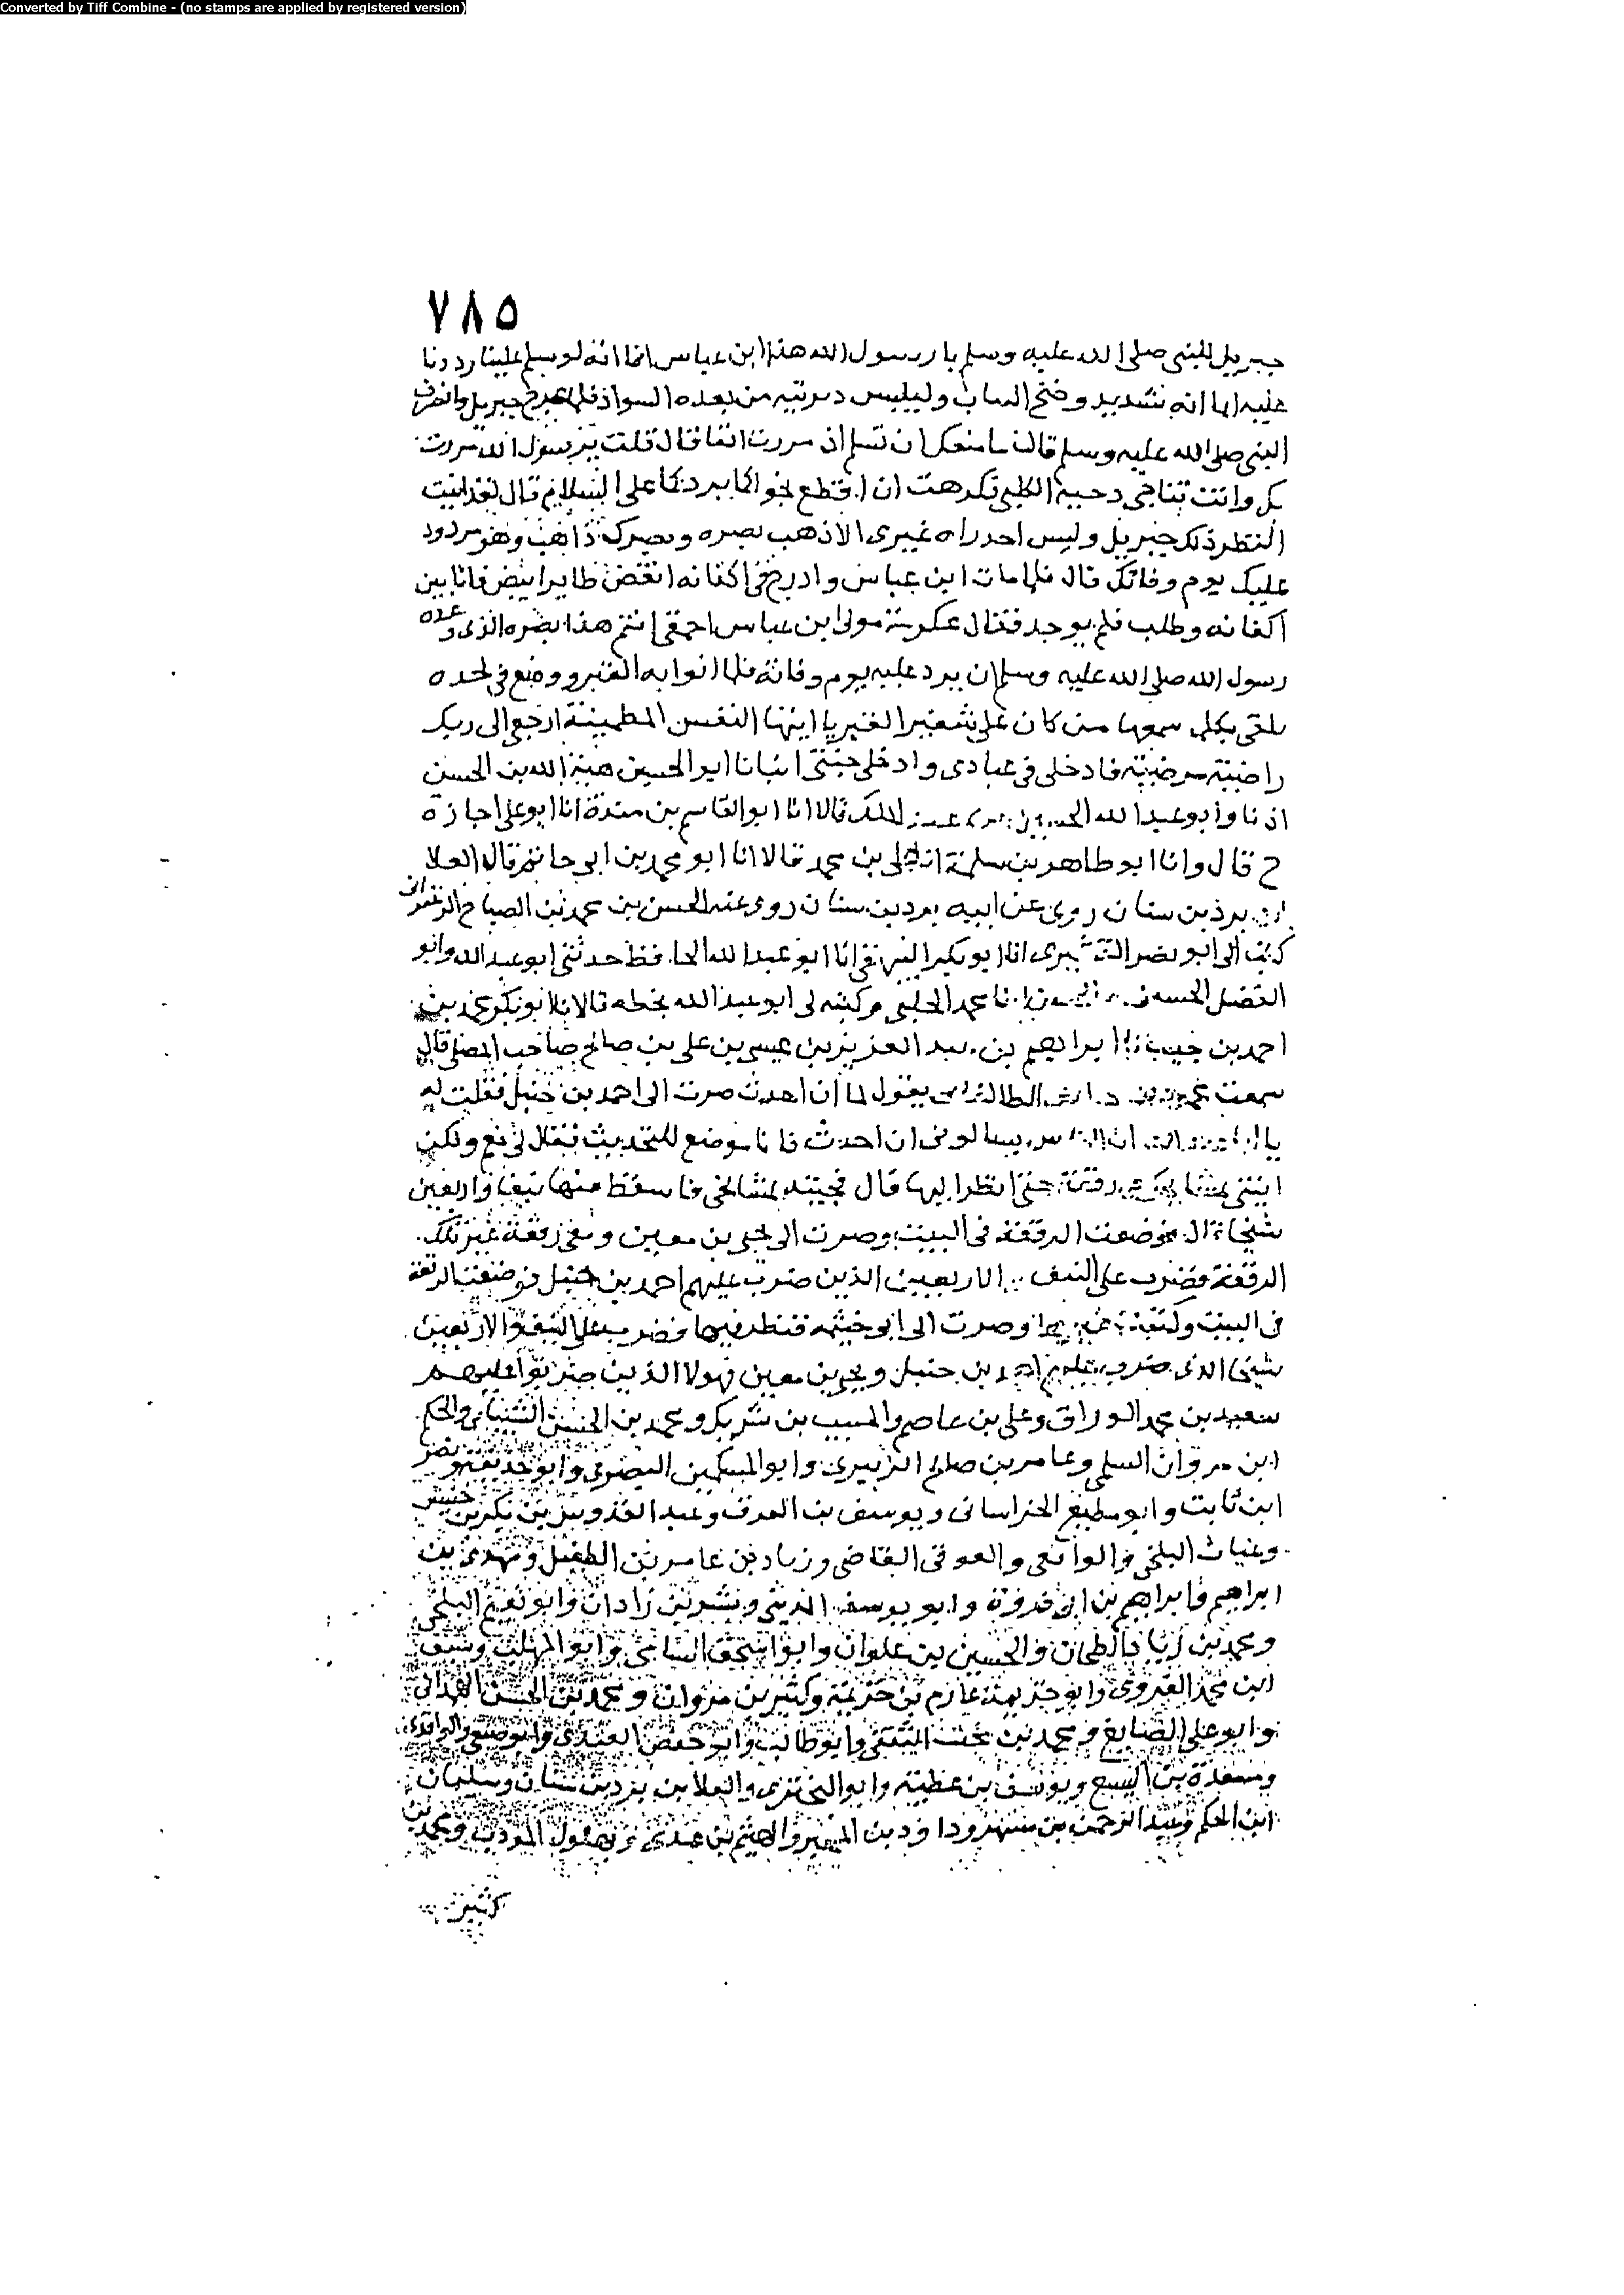 Converted by Tiff Combine - (no stamps are applied by registered version)
٧٨٥
جبريل للنبي صلى الله عليه وسلم يا رسول الله هذا ابن عباس اما انه لو سلم علينا رددنا
عليه اما انه شديد وضح الساب وليلبس ذريته من بعده السواد فلما عرج جبريل وانصرف
النبي صلى الله عليه وسلم قال ما منعك ان تسلم اذ مررت انفا قال قلت يرسول الله مررت
بك وانت تناجي دحية الكلبي فكرهت ان اقطع نجواكما بردكما على السلام قال لقد اثبت
النظر ذلك جبريل وليس احد راه غيري الا ذهب بصره وبصرك ذاهب وهو مردود
عليك يوم وفاتك قال فلما مات ابن عباس وادرج في اكفانه انقض طاير ابيض فاتا بين
اكفانه وطلب فلم يوجد فقال عكرمة مولى ابن عباس احمقى انتم هذا بصره الذي وعده
رسول الله صلى الله عليه وسلم ان يرد عليه يوم وفاته فلما اتوا به القبر ووضع في لحده
تلقي بكلمة سمعها من كان على شفير القبر يا ايتها النفس المطمينة ارجعي الى ربك
راضية مرضية فادخلي في عبادي وادخلي جنتي انبانا ابو الحسين هبة الله بن الحسن
اذنا وابو عبد الله الحسين بن عبد الملك قالا انا ابو القاسم بن مندة انا ابو علي اجازة
ح قال وانا ابو طاهر بن سلمة انا علي بن محمد قالا انا ابو محمد بن ابي حاتم قال العلا
ابن برد بن سنان روى عن ابيه برد بن سنان روى عنه الحسن بن محمد بن الصباح الزعفراني
كتب الى ابو نصر القشيري انا ابو بكر البيهقي انا ابو عبد الله الحافظ حدثني ابو عبد الله وابو
الفضل الحسن بن محمد الحليمي وكتبه لي ابو عبد الله بخطه قالا انا ابو بكر محمد بن
احمد بن حبيب ابراهيم بن عبد العزيز بن عيسى بن علي بن صالح صاحب المصلى قال
سمعت محمد بن الطالقاني يقول لما ان احدث صرت الى احمد بن حنبل فقلت له
يا ابا عبد الله ان الناس يسالوني ان احدث فانا موضع للتحديث فقال لي نعم ولكن
ايتني رقعة حتى انظر اليها قال فجيته بمشايخي فاسقط منها نيفا واربعين
شيخا قال فوضعت الرقعة في البيت وصرت الى يحيى بن معين ومعي رقعة غير تلك
الرقعة فضرب على النيف والاربعين الذين ضرب عليهم احمد بن حنبل فوضعت الرقعة
في البيت وكتبت غيرها وصرت الى ابو خيثمه فنظر فيها فضرب على النيف والاربعين
شيخا الذي ضرب عليهم احمد بن حنبل ويحيى بن معين فهولا الذين ضربوا عليهم
سعيد بن محمد الوراق وعلي بن عاصم والمسيب بن شريك ومحمد بن الحسن الشيباني والحكم
ابن مروان السلمي وعامر بن صالح الزبيري وابو المسكين البصري وابو حذيفة ونصر
ابن ثابت وابو مطيع الخراساني ويوسف بن الغرق وعبد القدوس بن بكر بن خنيس
وغياث البلخي والواقعي والعوفي القاضي وزياد بن عامر بن الطفيل ومهدي بن
ابراهيم وابراهيم بن ابي فروة وابو يوسف وبشر بن زاذان وابو نعيم البلخي
ومحمد بن زياد الطحان والحسين بن علوان وابو اسحق وابو المهلب وسيف
ابن محمد وابو خزيمة خازم بن خزيمة وكثير بن مروان ومحمد بن الحسن الهمداني
وابو علي الصايغ ومحمد بن الثقفي وابو طالب وابو حفص العبدي
ومسعدة بن اليسع ويوسف بن عطية وابو البختري والعلا بن برد بن سنان وسليمان
ابن الحكم وعبد الرحمن بن مسهر وداود بن المحبر والهيثم بن عدي وبهلول المودب ومحمد بن
كثير